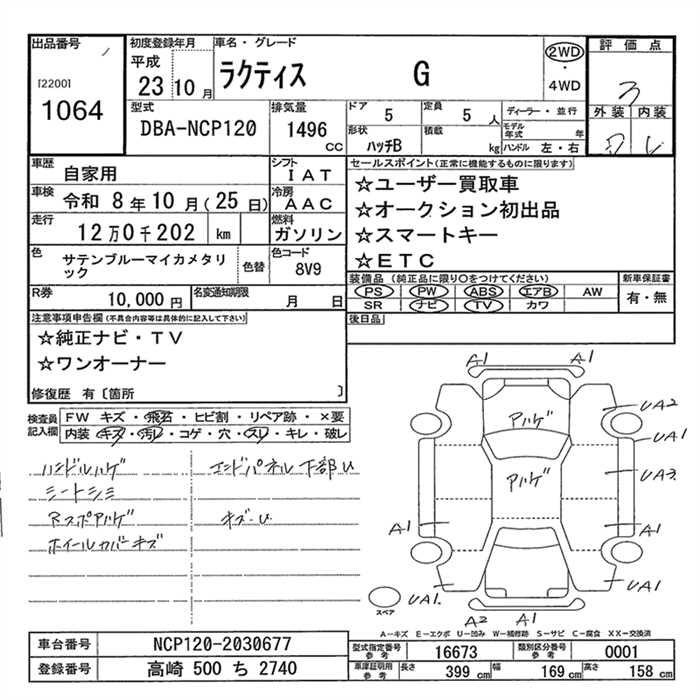 出品番号
[2200]
1064
初度登録年月
平成
23 10 月
車名・グレード
ラクティス G
2WD
・
4WD
評価点
3
外装 内装
型式
DBA-NCP120
排気量
1496
cc
ドア 5
定員 5 人
ディーラー・並行
形状
ハッチB
積載
kg
モデル
年式
年
ハンドル 左・右
車歴
自家用
シフト
IAT
車検
令和 8 年 10 月 ( 25 日)
冷房
AAC
走行
12 万0 千 202 km
燃料
ガソリン
色
サテンブルーマイカメタリ
ック
色替
色コード
8V9
R券
10,000 円
名変通知期限
月 日
セールスポイント(正常に機能するものに限ります)
☆ユーザー買取車
☆オークション初出品
☆スマートキー
☆ETC
装備品 (純正品に限り○をつけてください)
新車保証書
PS PW ABS エアB AW
有・無
SR ナビ TV カワ
後日品
注意事項申告欄 (不具合内容等は具体的に記入して下さい)
☆純正ナビ・TV
☆ワンオーナー
修復歴 有〔箇所 〕
検査員
記入欄
FW キズ・飛石・ヒビ割・リペア跡・×要
内装 キズ・汚レ・コゲ・穴・スレ・キレ・破レ
ハンドルハゲ
シートシミ
ホイールカバーキズ
エンドパネル下部U
キズ・U
A1
A1
UA2
UA1
UA3
A1
A1
UA1.
UA1.
A2 A1
スペア
A−キズ E−エクボ U−凹み W−補修跡 S−サビ C−腐食 XX−交換済
車台番号 NCP120-2030677
登録番号 高崎 500 ち 2740
型式指定番号
参考
16673
類別区分番号
参考
0001
車庫証明用
参考
長さ 399 cm
幅 169 cm
高さ 158 cm